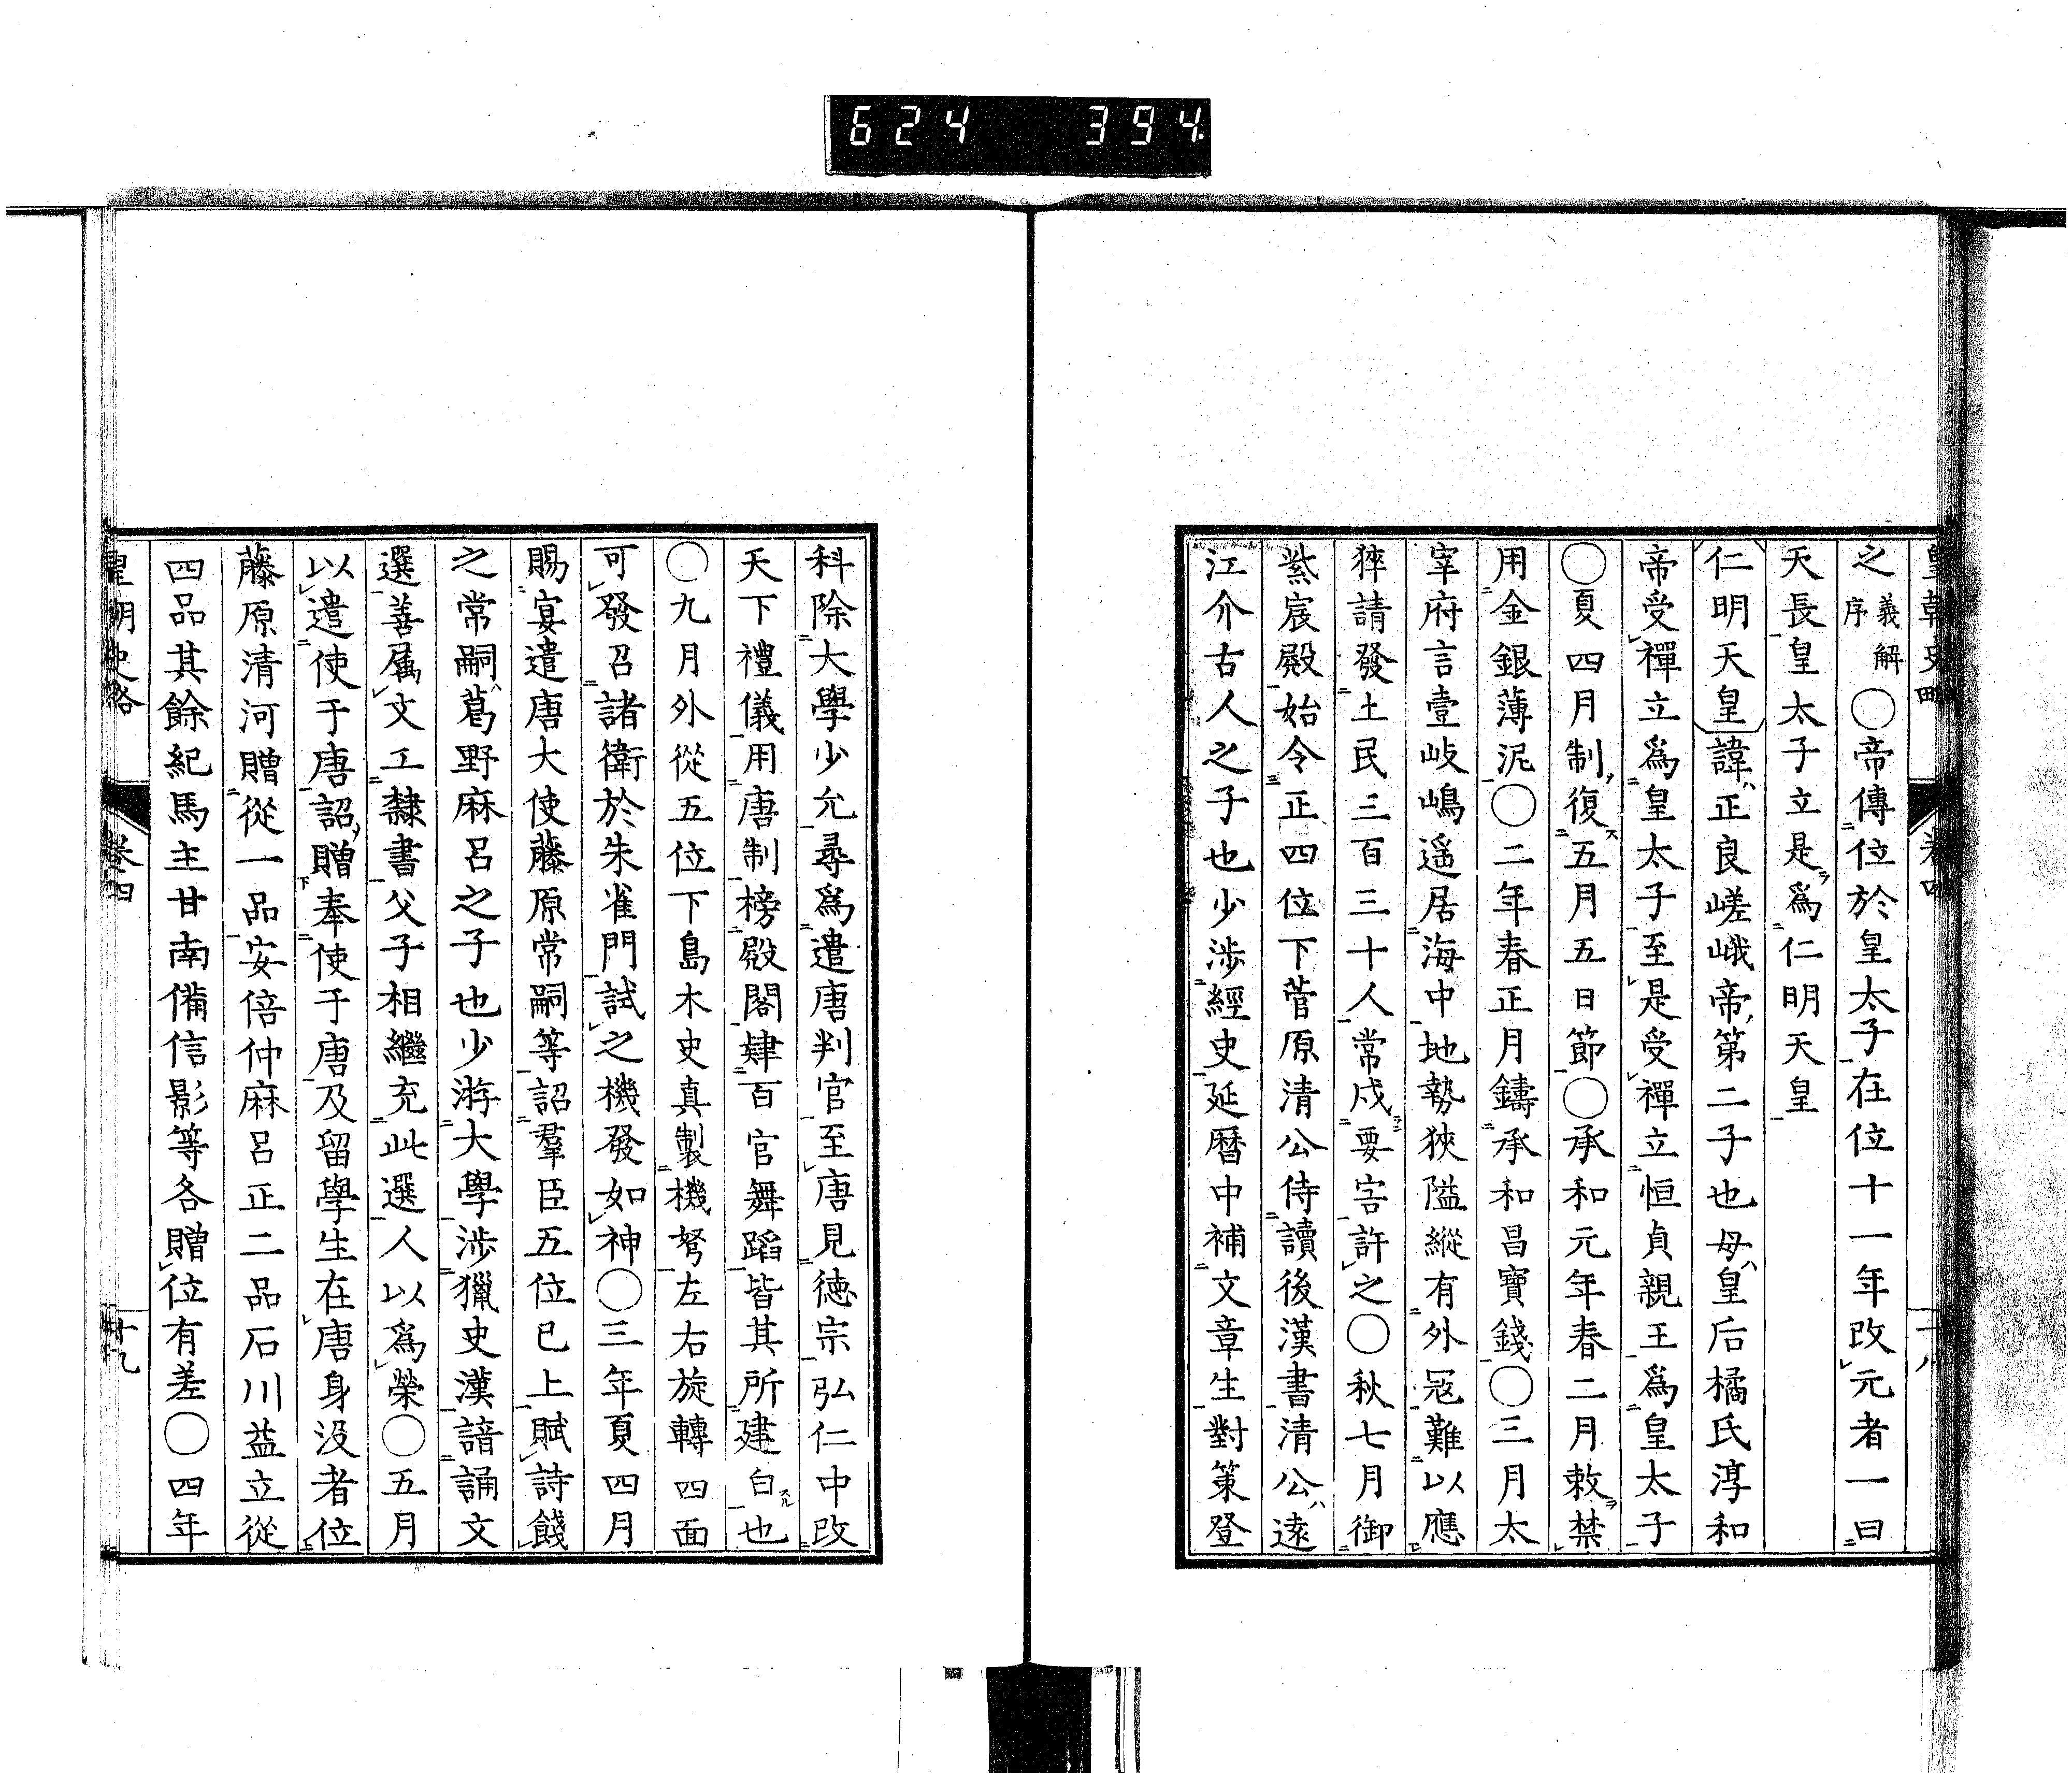 624 394
皇朝史略 卷四 十八
之義解序○帝傳位於皇太子在位十一年改元者一曰
天長皇太子立是爲仁明天皇
仁明天皇諱正良嵯峨帝第二子也母皇后橘氏淳和
帝受禪立爲皇太子至是受禪立恒貞親王爲皇太子
○夏四月制復五月五日節○承和元年春二月敕禁
用金銀薄泥○二年春正月鑄承和昌寶錢○三月太
宰府言壹岐嶋遥居海中地勢狹隘縱有外寇難以應
猝請發土民三百三十人常戍要害許之○秋七月御
紫宸殿始令正四位下菅原清公侍讀後漢書清公遠
江介古人之子也少涉經史延曆中補文章生對策登
科除大學少允尋爲遣唐判官至唐見德宗弘仁中改
天下禮儀用唐制榜殿閣肄百官舞蹈皆其所建白也
○九月外從五位下島木史真製機弩左右旋轉四面
可發召諸衛於朱雀門試之機發如神○三年夏四月
賜宴遣唐大使藤原常嗣等詔羣臣五位已上賦詩餞
之常嗣葛野麻呂之子也少游大學涉獵史漢諳誦文
選善属文工隸書父子相繼充此選人以爲榮○五月
以遣使于唐詔贈奉使于唐及留學生在唐身没者位
藤原清河贈從一品安倍仲麻呂正二品石川益立從
四品其餘紀馬主甘南備信影等各贈位有差○四年
皇朝史略 卷四 十九